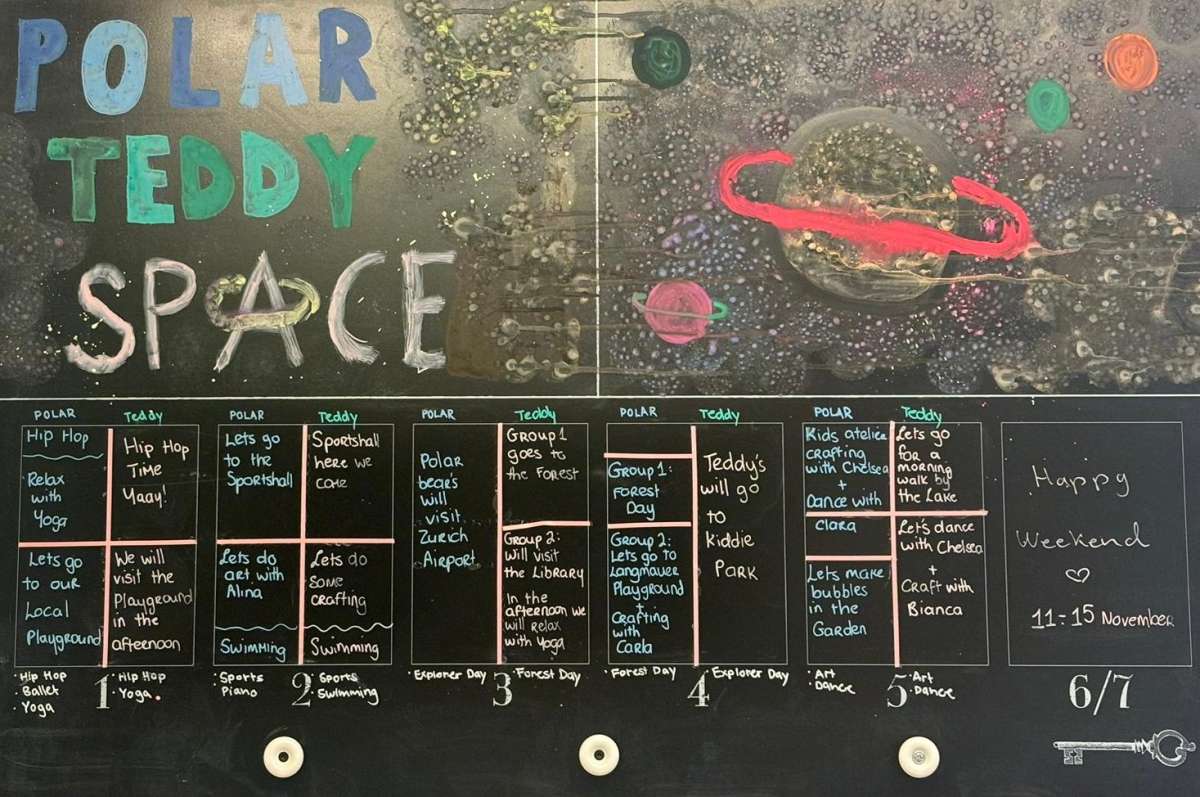 POLAR
TEDDY
SPACE
POLAR
Teddy
Hip Hop
Relax
with
Yoga
Lets go
to our
Local
Playground
Hip Hop
Time
Yaay!
We will
visit the
Playground
in the
afternoon
· Hip Hop
· Ballet
· Yoga
1
· Hip Hop
· Yoga.
POLAR
Teddy
Lets go
to the
Sportshall
Lets do
art with
Alina
Swimming
Sportshall
here we
come
Lets do
some
crafting
Swimming
· Sports
· Piano
2
· Sports
· Swimming
POLAR
Teddy
Polar
bears
will
visit
Zurich
Airport
Group 1
goes to
the Forest
Group 2:
will visit
the Library
In the
afternoon we
will Relax
with Yoga
· Explorer Day
3
· Forest Day
POLAR
Teddy
Group 1:
Forest
Day
Group 2:
Lets go to
Langmauer
Playground
+
Crafting
with
Carla
Teddy's
will go
to
kiddie
Park
· Forest Day
4
· Explorer Day
POLAR
Teddy
Kids atelier
crafting
with Chelsea
+
Dance with
Clara
Lets make
bubbles
in the
Garden
Lets go
for a
morning
walk by
the Lake
Let's dance
with Chelsea
+
Craft with
Bianca
· Art
· Dance
5
· Art
· Dance
Happy
Weekend
11-15 November
6/7